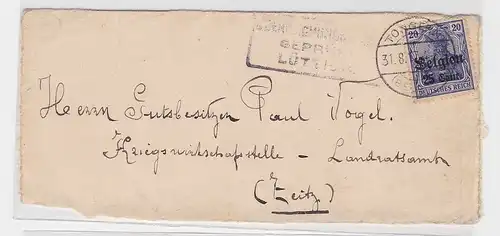 GEPRÜ
LÜTTI
TONGE
31.8.
20 20
Belgien
25 Cent.
DEUTSCHES REICH
Herrn Gutsbesitzer Paul Vogel.
Kriegswirtschaftsstelle – Landratsamt
(Zeitz)